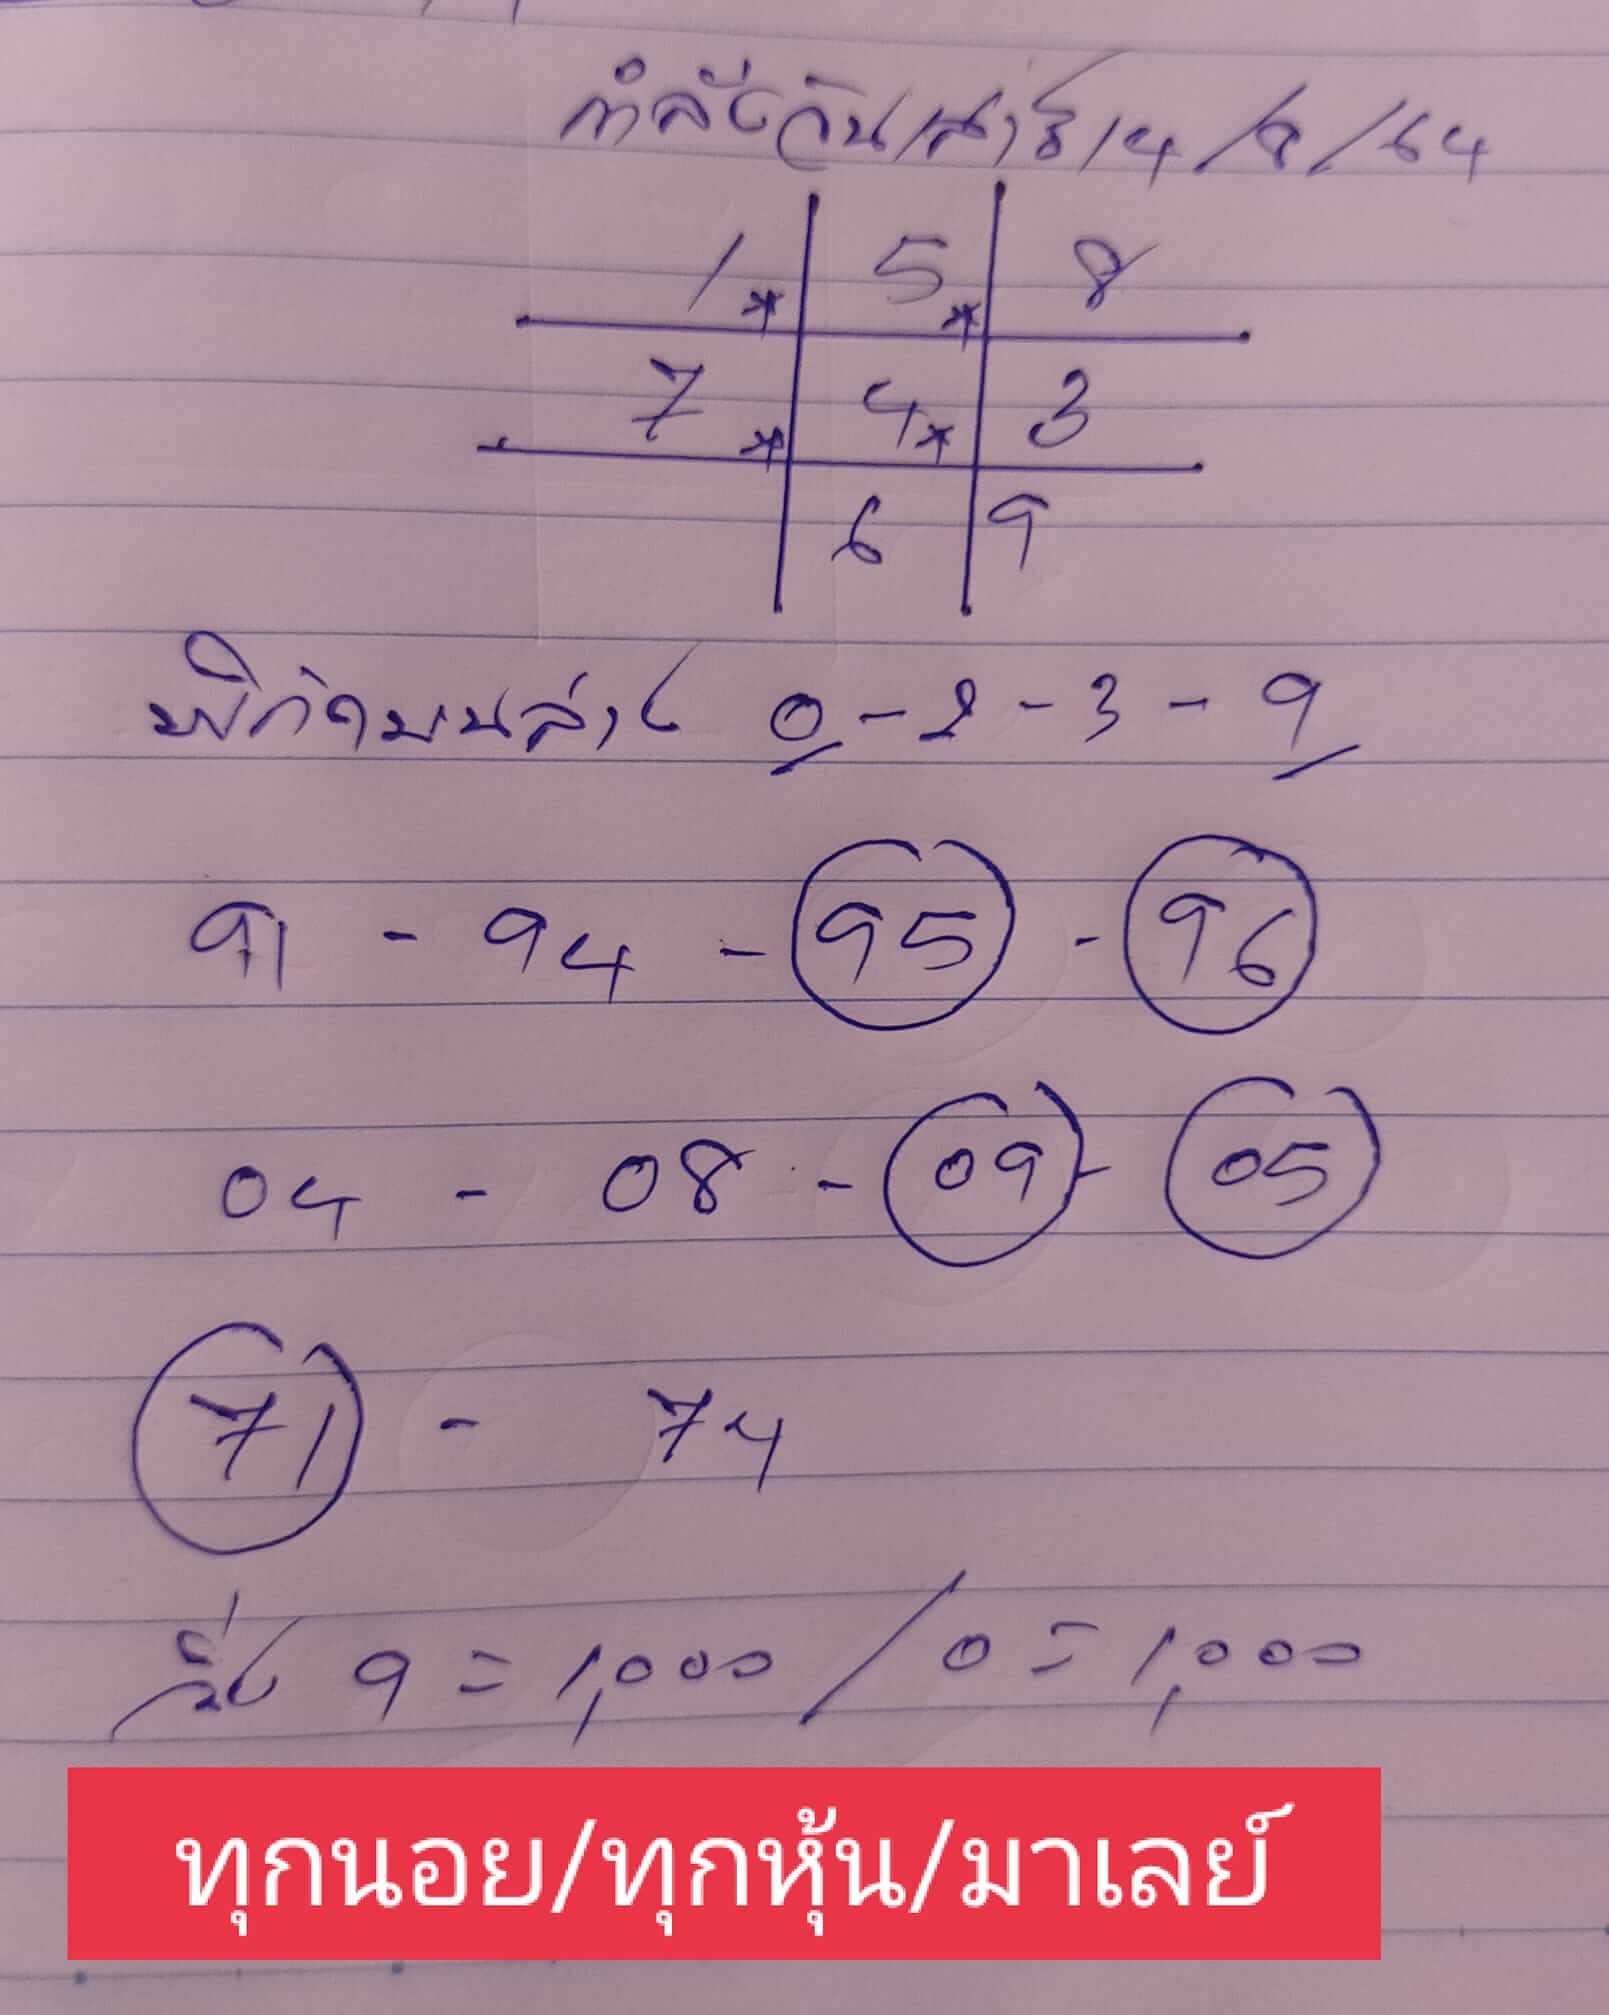 กำลังวันเสาร์ 14/8/64
1* 5* 8
7* 4* 3
6 9
พิกัดบนล่าง 0-2-3-9
91 - 94 - 95 - 96
04 - 08 - 09 - 05
71 - 74
วิ่ง 9 = 1,000 / 0 = 1,000
ทุกนอย/ทุกหุ้น/มาเลย์